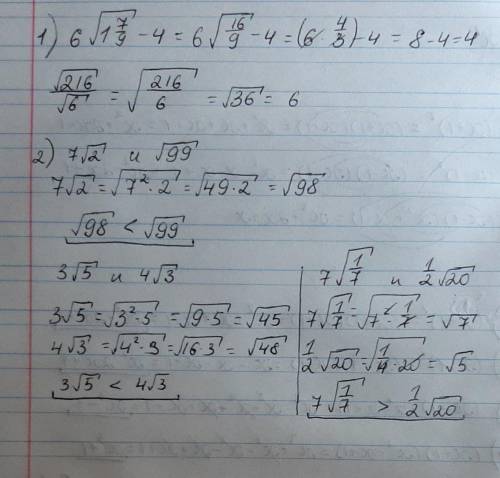 1) 6√(1 7/9) - 4 = 6√(16/9) - 4 = (6 · 4/3) - 4 = 8 - 4 = 4
√216/√6 = √(216/6) = √36 = 6
2) 7√2 и √99
7√2 = √(7² · 2) = √(49 · 2) = √98
√98 < √99
3√5 и 4√3
3√5 = √(3² · 5) = √(9 · 5) = √45
4√3 = √(4² · 3) = √(16 · 3) = √48
3√5 < 4√3
7√(1/7) и 1/2√20
7√(1/7) = √(7² · 1/7) = √7
1/2√20 = √(1/4 · 20) = √5
7√(1/7) > 1/2√20